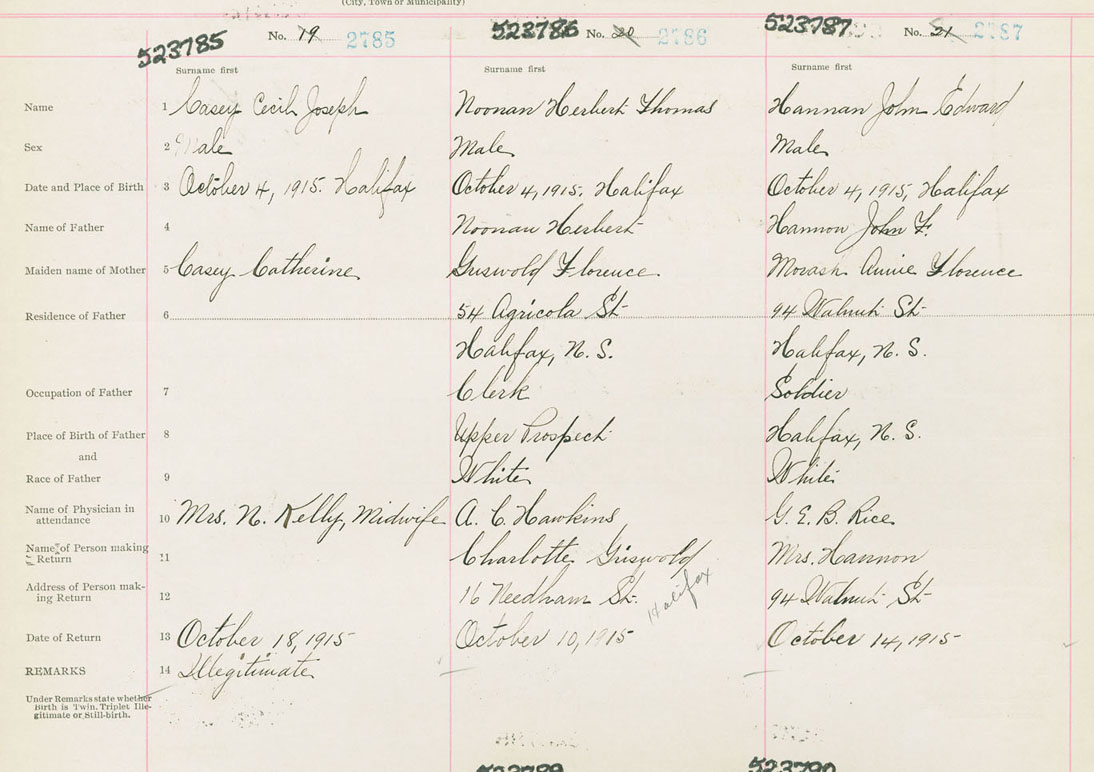 (City, Town or Municipality)
523785 No. 19 2785 523786 No. 20 2786 523787 No. 21 2787
Surname first Surname first Surname first
Name 1 Casey Cecil Joseph Noonan Herbert Thomas Hannan John Edward
Sex 2 Male Male Male
Date and Place of Birth 3 October 4, 1915. Halifax October 4, 1915, Halifax October 4, 1915, Halifax
Name of Father 4 Noonan Herbert Hannon John F.
Maiden name of Mother 5 Casey Catherine Griswold Florence Morash Annie Florence
Residence of Father 6 54 Agricola St 94 Walnut St
Halifax, N. S. Halifax, N. S.
Occupation of Father 7 Clerk Soldier
Place of Birth of Father 8 Upper Prospect Halifax, N. S.
and
Race of Father 9 White White
Name of Physician in
attendance 10 Mrs. N. Kelly, Midwife A. C. Hawkins G. E. B. Rice
Name of Person making
Return 11 Charlotte Griswold Mrs. Hannon
Address of Person mak-
ing Return 12 16 Needham St. Halifax 94 Walnut St
Date of Return 13 October 18, 1915 October 10, 1915 October 14, 1915
REMARKS 14 Illegitimate
Under Remarks state whether
Birth is Twin, Triplet Ille-
gitimate or Still-birth.
523789 523790